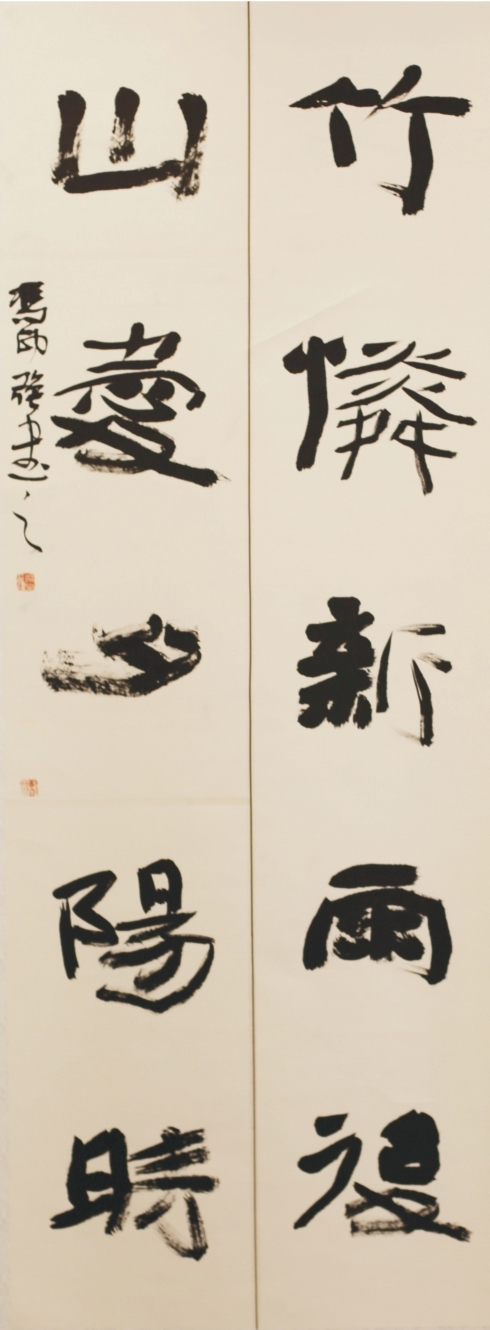 竹憐新雨後
山愛夕陽時